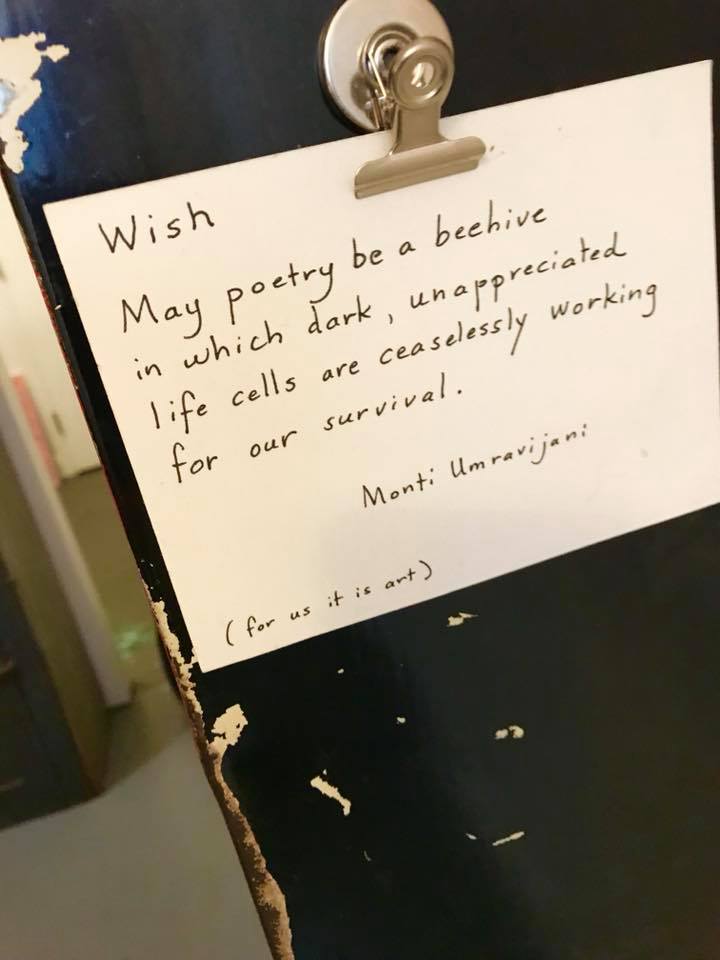 Wish
May poetry be a beehive
in which dark, unappreciated
life cells are ceaselessly working
for our survival.
Monti Umravijani
(for us it is art)